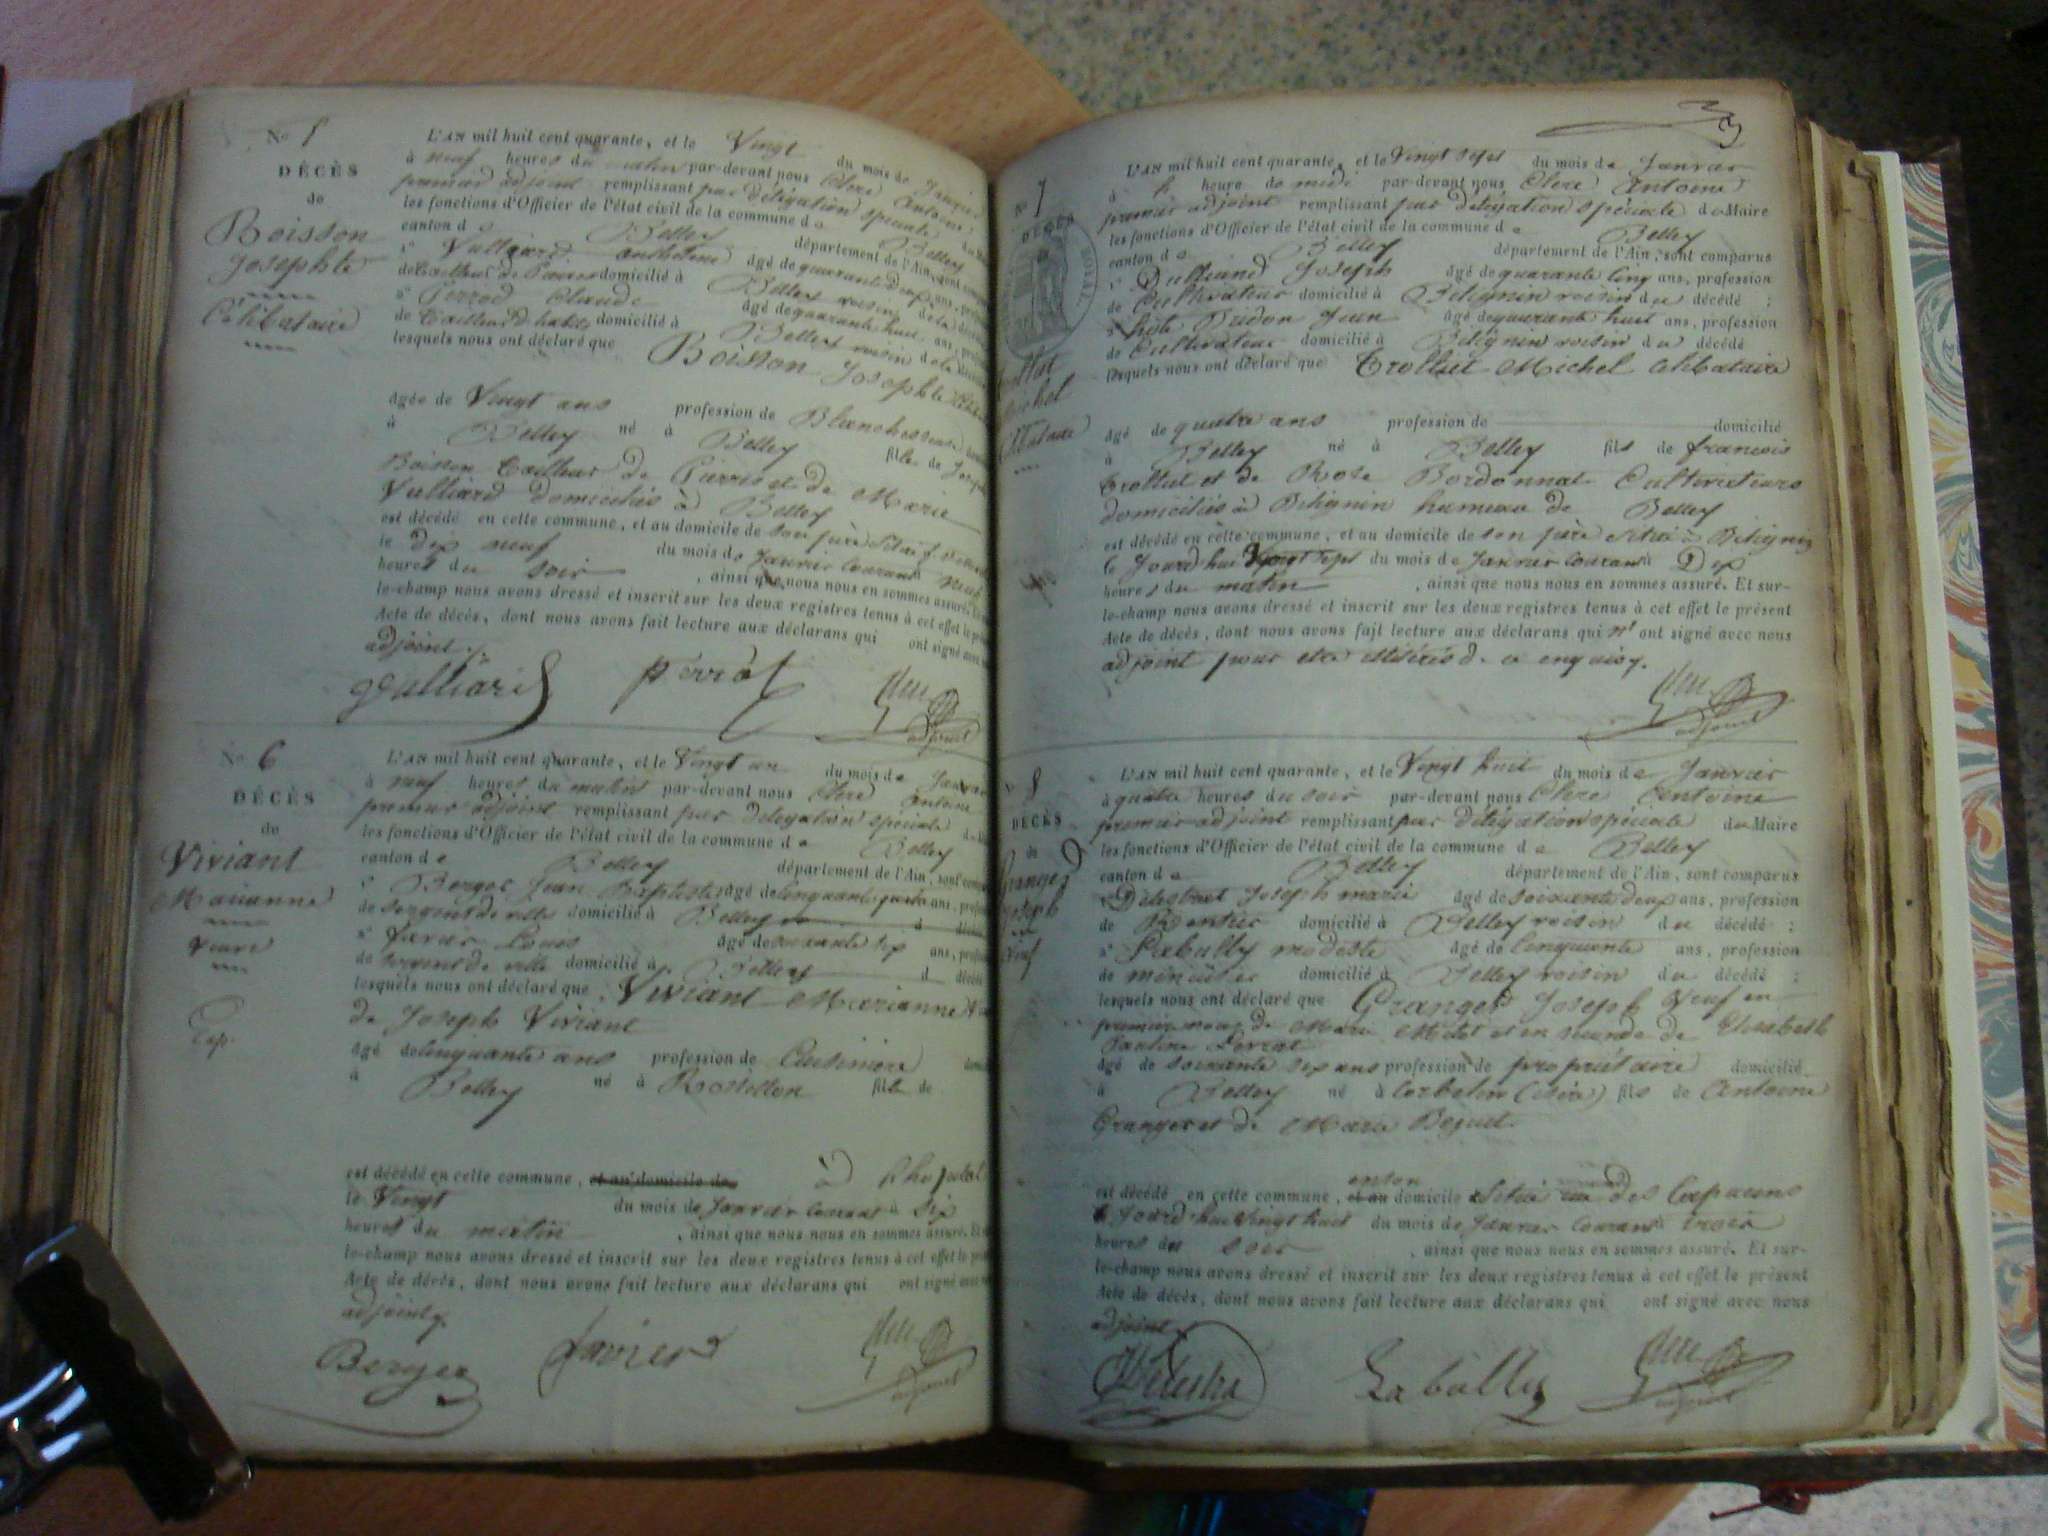 N° 5
DÉCÈS
de
Boisson
Josephte
Célibataire
L'AN mil huit cent quarante, et le Vingt du mois de Janvier
à neuf heures du matin par-devant nous Clerc Antoine
premier adjoint remplissant par délégation spéciale
les fonctions d'Officier de l'état civil de la commune de Belley
canton de Belley département de l'Ain, sont
1° Vulliard anthelme âgé de quarante deux ans,
de tailleur de Pierres domicilié à Belley voisin de la
2° Perrod Claude âgé de quarante huit ans,
de tailleur d'habits domicilié à Belley voisin de la
lesquels nous ont déclaré que Boisson Josephte
âgée de Vingt ans profession de Blanchisseuse
à Belley né à Belley fille de Joseph
Boisson tailleur de Pierres et de Marie
Vulliard domiciliés à Belley
est décédé en cette commune, et au domicile de son père
le dix neuf du mois de Janvier courant à neuf
heures du soir , ainsi que nous nous en sommes assuré.
le-champ nous avons dressé et inscrit sur les deux registres tenus à cet effet le
Acte de décès, dont nous avons fait lecture aux déclarans qui ont signé avec
adjoint.
Vulliard perrod
adjoint
N° 6
DÉCÈS
de
Viviant
Marianne
veuve
L'AN mil huit cent quarante, et le Vingt un du mois de Janvier
à neuf heures du matin par-devant nous Clerc Antoine
premier adjoint remplissant par délégation spéciale
les fonctions d'Officier de l'état civil de la commune de Belley
canton de Belley département de l'Ain, sont
1° Berger Jean Baptiste âgé de cinquante quatre ans,
de sergent de ville domicilié à Belley
2° Favier Louis âgé de soixante six ans,
de sergent de ville domicilié à Belley d
lesquels nous ont déclaré que Viviant Marianne
de Joseph Viviant
âgé de cinquante ans profession de Cuisinière
à Belley né à Rossillon fille de
est décédé en cette commune, et au domicile de à l'hopital
le Vingt du mois de Janvier courant à six
heures du matin , ainsi que nous nous en sommes assuré. Et
le-champ nous avons dressé et inscrit sur les deux registres tenus à cet effet le
Acte de décès, dont nous avons fait lecture aux déclarans qui ont signé avec
adjoint.
Berger favier
adjoint
3
N° 7
DÉCÈS
Michel
L'AN mil huit cent quarante, et le Vingt sept du mois de Janvier
à heure de midi par-devant nous Clerc Antoine
premier adjoint remplissant par délégation spéciale du Maire
les fonctions d'Officier de l'état civil de la commune de Belley
canton de Belley département de l'Ain, sont comparus
1° Dulliand Joseph âgé de quarante cinq ans, profession
de Cultivateur domicilié à Bilignin voisin du décédé ;
2° Pridon Jean âgé de quarante huit ans, profession
de Cultivateur domicilié à Bilignin voisin du décédé
lesquels nous ont déclaré que Trolliet Michel célibataire
âgé de quatre ans profession de domicilié
à Belley né à Belley fils de francois
trolliet et de Rose Bordonnat Cultivateurs
domiciliés à Bilignin hameau de Belley
est décédé en cette commune, et au domicile de son père situé à Bilignin
le Jourd'hui Vingt sept du mois de Janvier courant à Dix
heures du matin , ainsi que nous nous en sommes assuré. Et sur-
le-champ nous avons dressé et inscrit sur les deux registres tenus à cet effet le présent
Acte de décès, dont nous avons fait lecture aux déclarans qui n'ont signé avec nous
adjoint pour etre illitérés de ce enquis.
adjoint
N° 8
DÉCÈS
de
Granger
Joseph
veuf
L'AN mil huit cent quarante, et le Vingt huit du mois de Janvier
à quatre heures du soir par-devant nous Clerc Antoine
premier adjoint remplissant par délégation spéciale du Maire
les fonctions d'Officier de l'état civil de la commune de Belley
canton de Belley département de l'Ain, sont comparus
Délestra Joseph marie âgé de soixante deux ans, profession
de Rentier domicilié à Belley voisin du décédé ;
2° Labully modeste âgé de Cinquante ans, profession
de menuisier domicilié à Belley voisin du décédé ;
lesquels nous ont déclaré que Granger Joseph Veuf en
premier noces de Marie Midot et en seconde de Elisabeth
Pauline
âgé de soixante six ans profession de propriétaire domicilié
à Belley né à Corbelin (isère) fils de Antoine
Granger et de Marie Beguet.
est décédé en cette commune, et au domicile situé des Capucins
le Jourd'hui Vingt huit du mois de Janvier courant à trois
heures du soir , ainsi que nous nous en sommes assuré. Et sur-
le-champ nous avons dressé et inscrit sur les deux registres tenus à cet effet le présent
Acte de décès, dont nous avons fait lecture aux déclarans qui ont signé avec nous
adjoint
Délestra Labully
adjoint